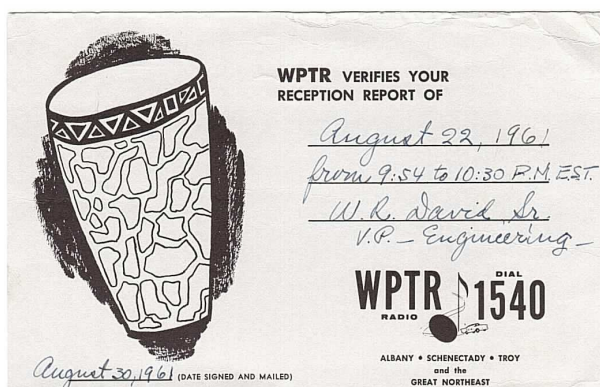 WPTR VERIFIES YOUR
RECEPTION REPORT OF
August 22, 1961
from 9:54 to 10:30 P.M. EST.
W. R. David Sr.
V.P. - Engineering -
WPTR
RADIO
DIAL
1540
ALBANY • SCHENECTADY • TROY
and the
GREAT NORTHEAST
August 30, 1961 (DATE SIGNED AND MAILED)